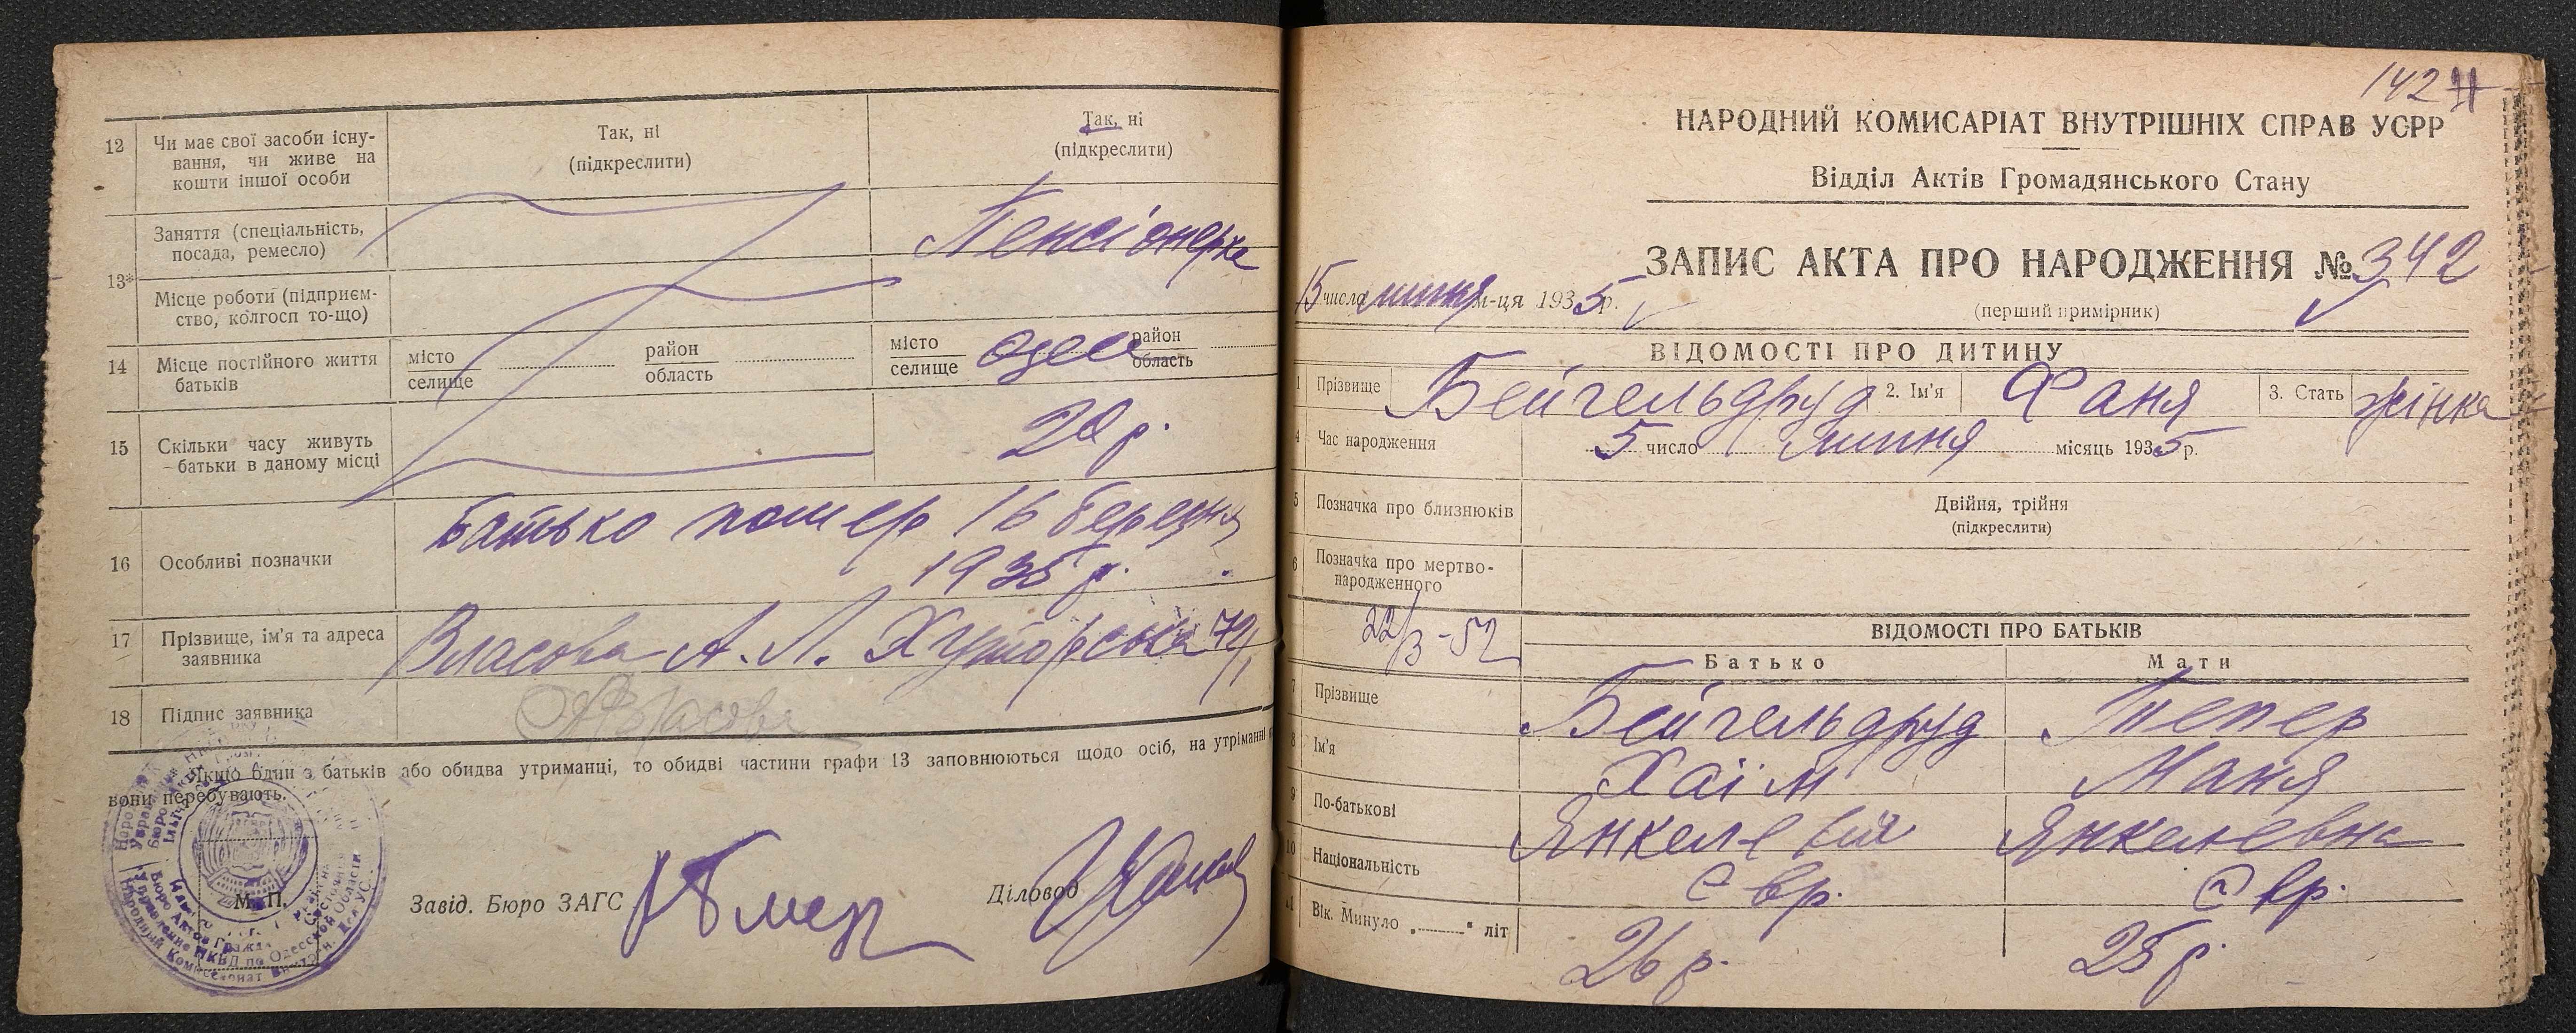 12 Чи має свої засоби існу-
вання, чи живе на
кошти іншої особи
Так, ні
(підкреслити)
Так, ні
(підкреслити)
13* Заняття (спеціальність,
посада, ремесло)
Пенсіонерка
Місце роботи (підприєм-
ство, колгосп то-що)
14 Місце постійного життя
батьків
місто
селище
район
область
місто
селище
Одеса
район
область
15 Скільки часу живуть
батьки в даному місці
20 р.
16 Особливі позначки
Батько помер 16 березня
1935 р.
17 Прізвище, ім'я та адреса
заявника
Власова А. Л. Хуторська 72/1
18 Підпис заявника
АВласова
Якщо один з батьків або обидва утриманці, то обидві частини графи 13 заповнюються щодо осіб, на утриманні
вони перебувають.
М. П.
Завід. Бюро ЗАГС
Діловод
142
НАРОДНИЙ КОМИСАРІАТ ВНУТРІШНІХ СПРАВ УСРР
Відділ Актів Громадянського Стану
ЗАПИС АКТА ПРО НАРОДЖЕННЯ № 342
15 числа липня м-ця 1935 р.
(перший примірник)
ВІДОМОСТІ ПРО ДИТИНУ
1 Прізвище Бейгельдруд 2. Ім'я Фаня 3. Стать жінка
4 Час народження 5 число липня місяць 1935 р.
5 Позначка про близнюків
Двійня, трійня
(підкреслити)
6 Позначка про мертво-
народженного
22/3-52
ВІДОМОСТІ ПРО БАТЬКІВ
Батько Мати
7 Прізвище Бейгельдруд Тепер
8 Ім'я Хаїм Маня
9 По-батькові Янкелевич Янкелевна
10 Національність Євр. Євр.
11 Вік. Минуло „ “ літ 26 р. 25 р.